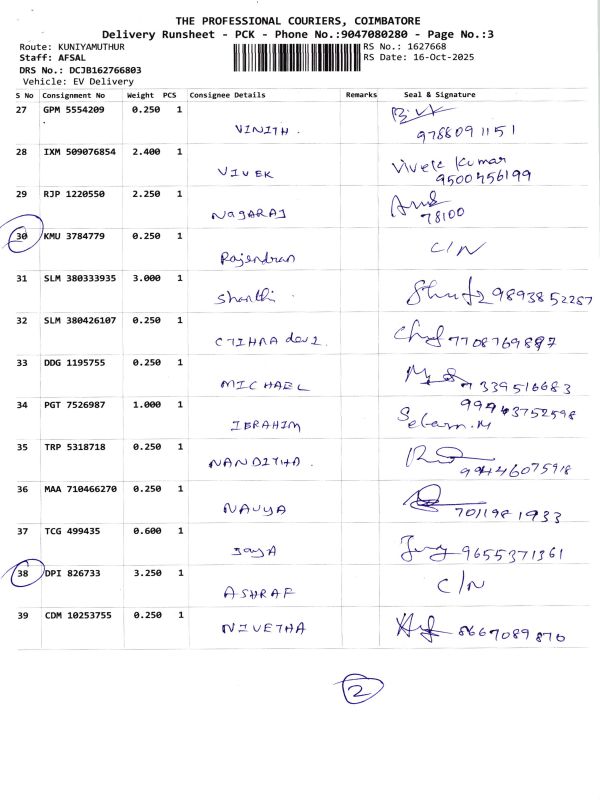 THE PROFESSIONAL COURIERS, COIMBATORE
Delivery Runsheet - PCK - Phone No.:9047080280 - Page No.:3
Route: KUNIYAMUTHUR RS No.: 1627668
Staff: AFSAL RS Date: 16-Oct-2025
DRS No.: DCJB162766803
Vehicle: EV Delivery
S No Consignment No Weight PCS Consignee Details Remarks Seal & Signature
27 GPM 5554209 0.250 1
VINITH . 9788091151
28 IXM 509076854 2.400 1 Vivek Kumar
VIVEK 9500456199
29 RJP 1220550 2.250 1
NAGARAJ 78100
30 KMU 3784779 0.250 1 C/N
Rajendran
31 SLM 380333935 3.000 1
Shanthi . 9893852287
32 SLM 380426107 0.250 1
devi 7708769897
33 DDG 1195755 0.250 1
MICHAEL 7339516683
34 PGT 7526987 1.000 1 99943752598
IBRAHIM Selam.M
35 TRP 5318718 0.250 1
NANDITHA . 99446075918
36 MAA 710466270 0.250 1
NAVYA 7011981933
37 TCG 499435 0.600 1
JayA 9655371361
38 DPI 826733 3.250 1 C/N
ASHRAF
39 CDM 10253755 0.250 1
NIVETHA 8667089870
2